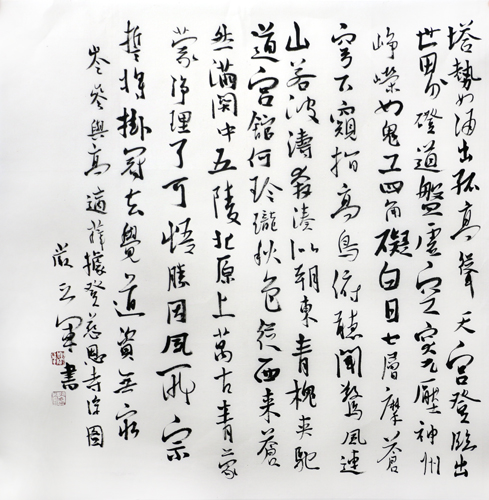 塔勢如涌出孤高聳天宮登臨出
世界磴道盤虛空突兀壓神州
崢嶸如鬼工四角礙白日七層摩蒼
穹下窺指高鳥俯聽聞驚風連
山若波濤奔湊似朝東青槐夾馳
道宮館何玲瓏秋色從西來蒼
然滿關中五陵北原上萬古青蒙
蒙净理了可悟勝因夙所宗
誓將掛冠去覺道資無窮
岑參與高適薛據登慈恩寺浮圖
書